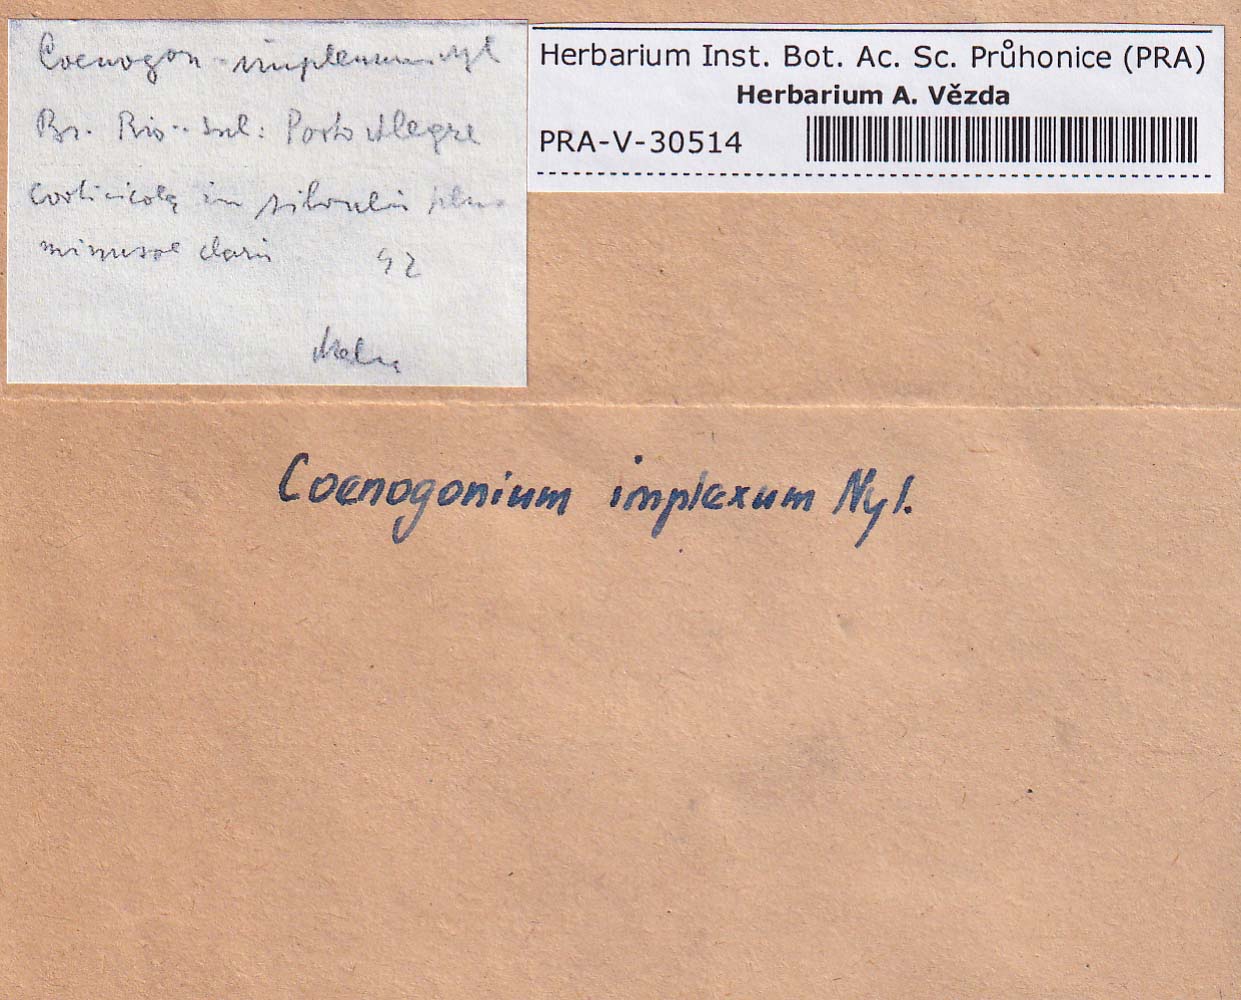 Coenogon. implexum Nyl
Br. Rio.. sul: Porto Alegre
corticicola in silvulis plus
minusve claris 92
Malme
Herbarium Inst. Bot. Ac. Sc. Průhonice (PRA)
Herbarium A. Vězda
PRA-V-30514
Coenogonium implexum Nyl.